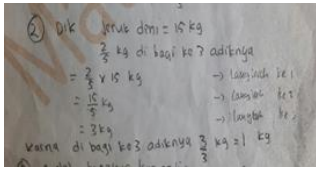 ② Dik jeruk dini = 15 kg
2/5 kg di bagi ke 3 adiknya
= 2/5 x 15 kg → langkah ke 1
= 15/5 kg → langkah ke 2
= 3 kg → langkah ke
karna di bagi ke 3 adiknya 3/3 kg = 1 kg